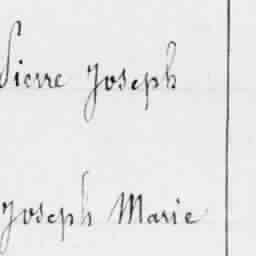 Pierre Joseph
Joseph Marie